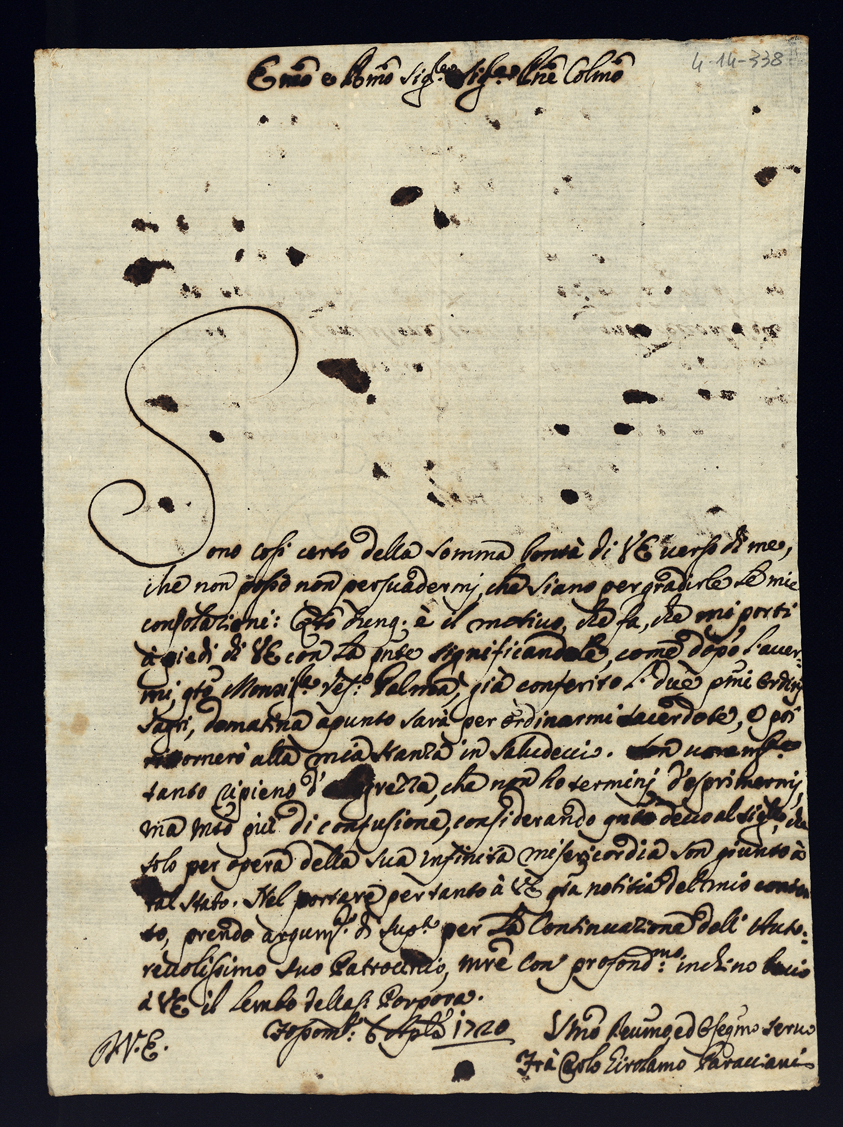 4-14-338
Emo e Rmo Sig.re Sig.re Pne Colmo
Sono così certo della somma bontà di VE verso di me,
che non posso non persuadermi, che siano per gradirle le mie
consolationi: Qto è il motivo, che fa, che mi porti
à piedi di VE con la pnte significandole, come dopo l'aver-
mi qto Monsig.r Vesc.o Palma già conferito li due pmi ordini
sagri, domatina àpunto sarà per ordinarmi sacerdote, e poi
ritornerò alla mia stanza in Saludecci. Son
tanto ripieno d'allegrezza, che non ho termini d'esprimermi,
ma mto più di confusione, considerando qnto devo al Sig.re, che
solo per opera della sua infinita misericordia son giunto à
tal stato. Nel portare pertanto à VE qta notitia del mio conten
to, prendo argum.to di sup.la per la Continuazione dell'Auto-
revolissimo suo Patrocinio, mre con profond.mo inchino bacio
à VE il lembo della S. Porpora.
6 1720
Umo Devmo ed Osseqmo Servo
W. E.
Frà Carlo Girolamo Paracciani